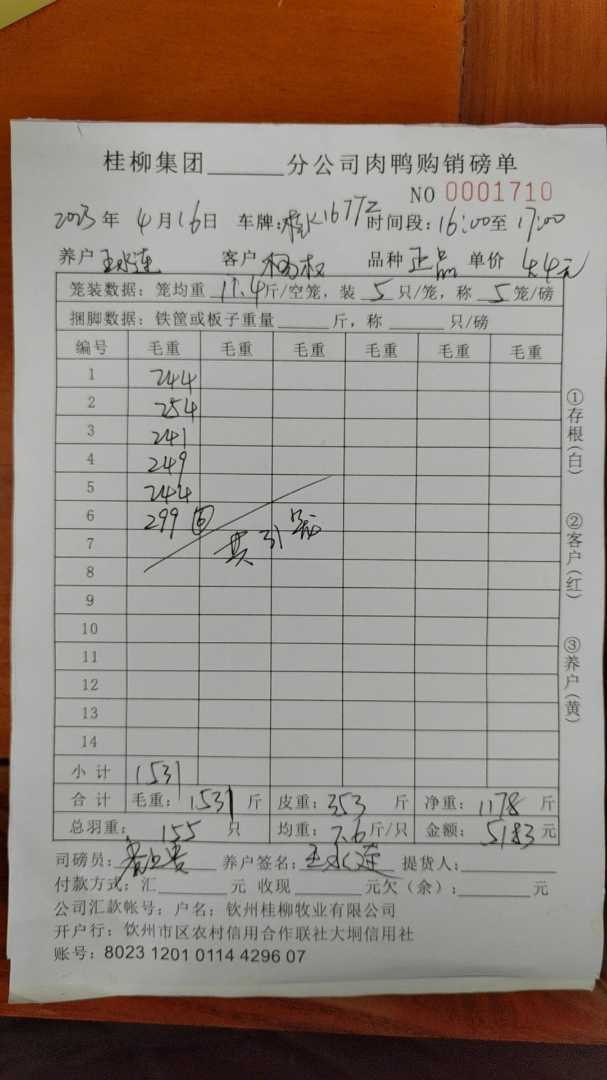 桂柳集团______分公司肉鸭购销磅单
NO 0001710
2023年4月16日 车牌:桂K1677Z 时间段:16:00至17:00
养户 王水连 客户 杨权 品种 正品 单价 4.4元
笼装数据:笼均重 11.4斤/空笼,装 5 只/笼,称 5 笼/磅
捆脚数据:铁筐或板子重量______斤,称______只/磅
编号 毛重 毛重 毛重 毛重 毛重 毛重
1 244
2 254
3 241
4 249
5 244
6 299 ⑥
7 共31笼
8
9
10
11
12
13
14
小计 1531
合计 毛重:1531斤 皮重:353斤 净重:1178斤
总羽重:155只 均重:7.6斤/只 金额:5183元
司磅员: 养户签名:王水连 提货人:
付款方式:汇______元 收现______元欠(余):______元
公司汇款帐号:户名:钦州桂柳牧业有限公司
开户行:钦州市区农村信用合作联社大垌信用社
账号:8023 1201 0114 4296 07
①存根(白)
②客户(红)
③养户(黄)